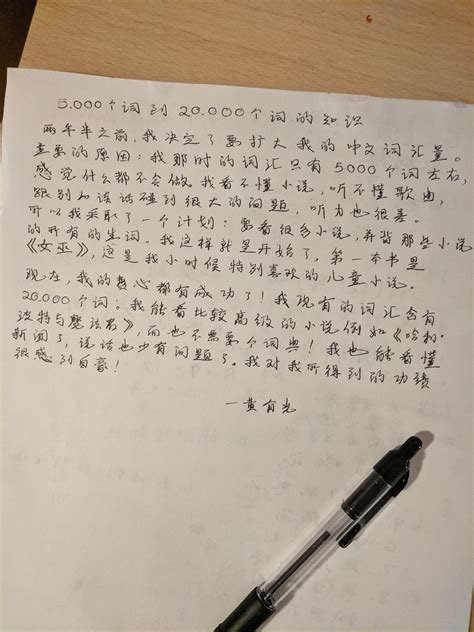 5.000个词到20.000个词的知识
两年半之前,我决定了要扩大我的中文词汇量。
重要的原因:我那时的词汇只有5000个词左右,
感觉什么都不会做。我看不懂小说,听不懂歌曲,
跟别人说话碰到很大的问题,听力也很差。
所以我采取了一个计划:要看很多小说,并背那些小说
的所有的生词。我这样就是开始了,第一本书是
《女巫》,这是我小时候特别喜欢的儿童小说。
现在,我的费心都有成功了!我现有的词汇含有
20.000个词;我能看比较高级的小说例如《哈利·
波特与魔法石》,而也不需要个词典!我也能看懂
新闻了,说话也少有问题了。我对我所得到的功绩
很感到自豪!
—黄有光